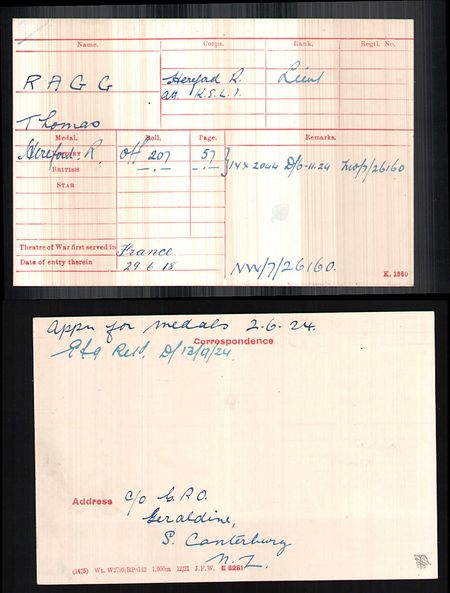 Name. Corps. Rank. Regtl. No.
RAGG Hereford R. Lieut
att. K.S.L.I.
Thomas
Medal. Roll. Page. Remarks.
VICTORY Hereford. R. Off 207 57 } 14 x 2044 D/6-11-24 NW/7/26160
BRITISH -"- -"-
STAR
Theatre of War first served in France
Date of entry therein 29.6.18 NW/7/26160.
K. 1380
Appn for medals 2.6.24.
Correspondence
Retd. D/12/9/24
Address c/o G.P.O.
Geraldine,
S. Canterbury
N.Z.
1,000m 12/21 J.F.W. E 8281